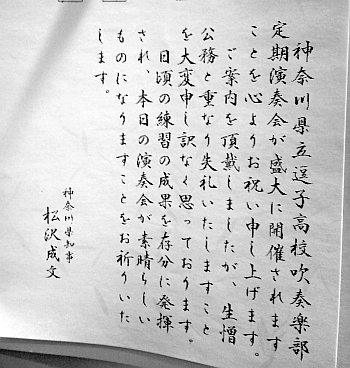 神奈川県立逗子高校吹奏楽部
定期演奏会が盛大に開催されます
ことを心よりお祝い申し上げます。
ご案内を頂戴しましたが、生憎
公務と重なり失礼いたしますこと
を大変申し訳なく思っております。
日頃の練習の成果を存分に発揮
され、本日の演奏会が素晴らしい
ものになりますことをお祈りいた
します。
神奈川県知事
松沢成文